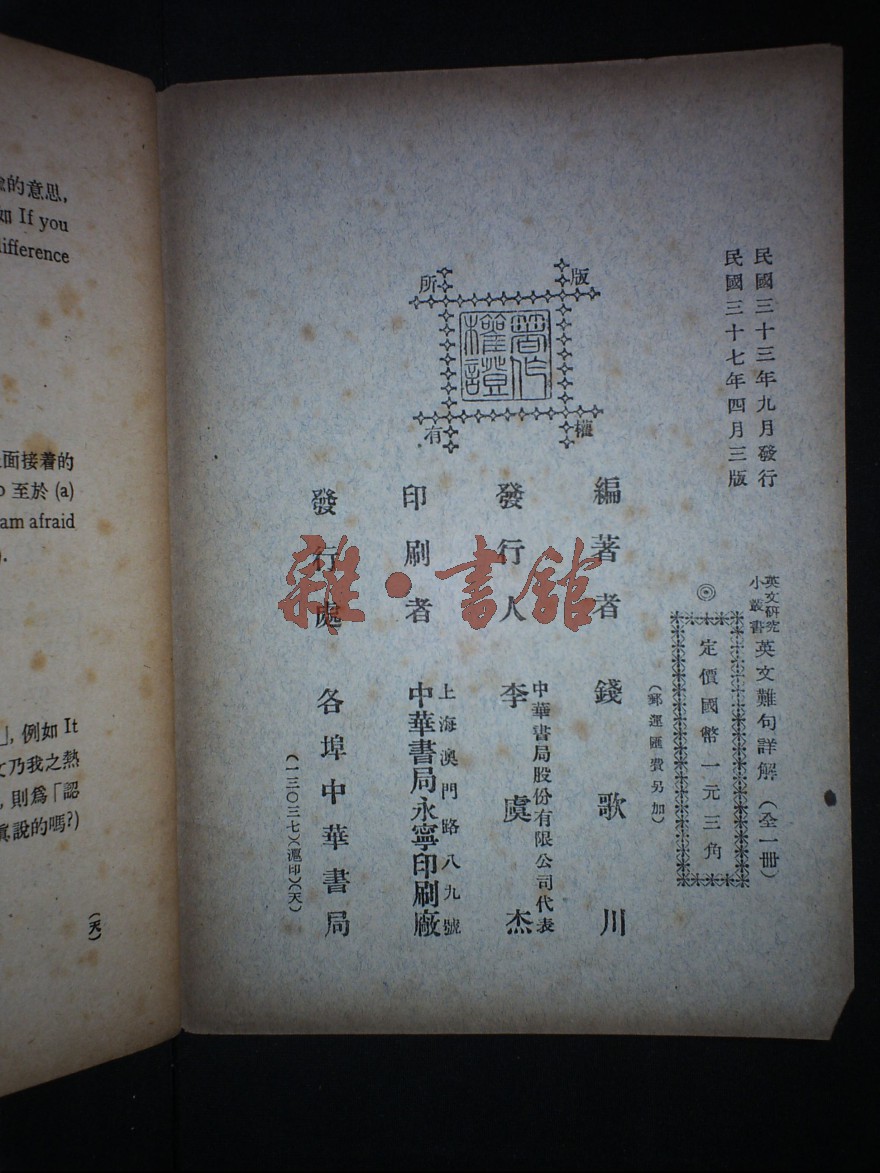 民國三十三年九月發行
民國三十七年四月三版
英文研究
小叢書
英文難句詳解(全一冊)
◎
定價國幣一元三角
(郵運匯費另加)
版
權
所
有
著作
權證
編著者 錢歌川
發行人
中華書局股份有限公司代表
李虞杰
印刷者
上海澳門路八九號
中華書局永寧印刷廠
發行處 各埠中華書局
(一三〇三七)(滬印)(天)
雜·書館
的意思,
如 If you
difference
面接着的
至於 (a)
am afraid
).
」, 例如 It
乃我之熱
, 則爲「認
眞說的嗎?)
(天)